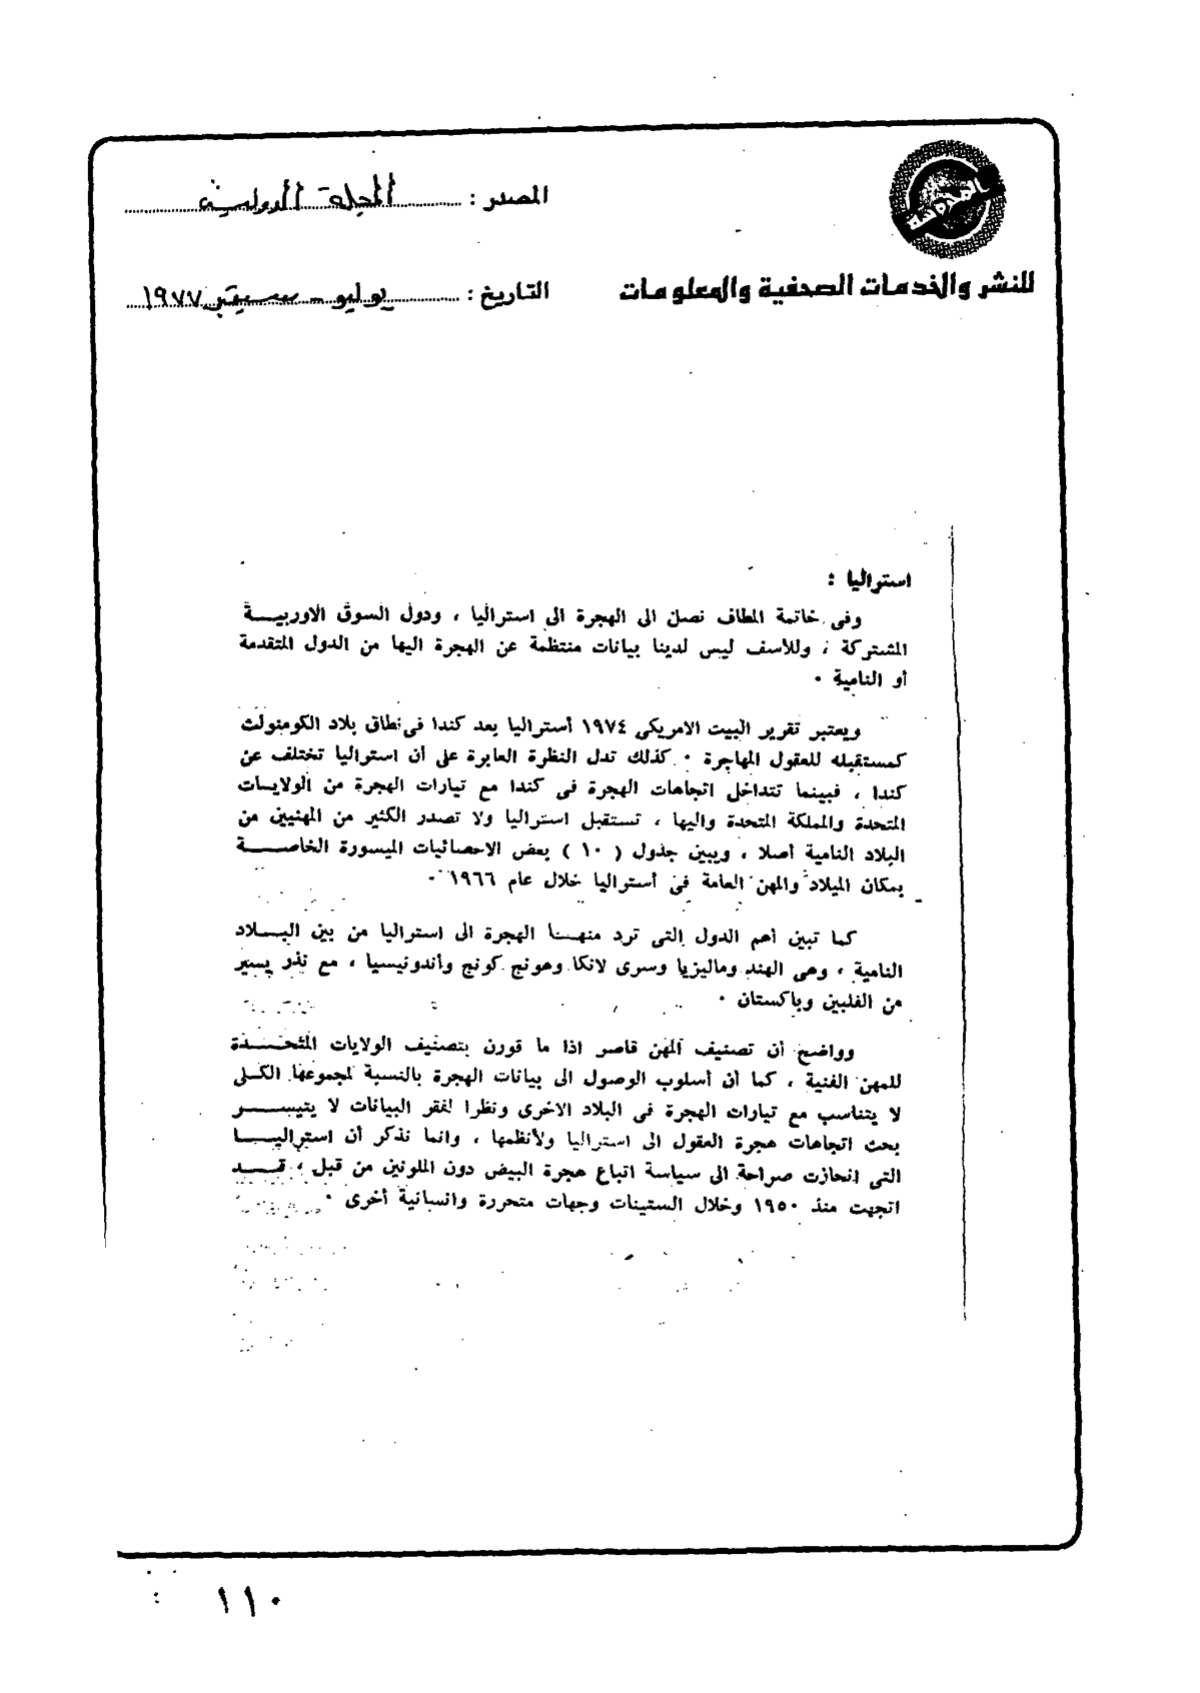 المصدر : المجلة الدولية
للنشر والخدمات الصحفية والمعلومات
التاريخ : يوليو - سبتمبر ١٩٧٧
استراليا :
وفى خاتمة المطاف نصل الى الهجرة الى استراليا ، ودول السوق الاوربيــــة
المشتركة ، وللأسف ليس لدينا بيانات منتظمة عن الهجرة اليها من الدول المتقدمة
أو النامية ٠
ويعتبر تقرير البيت الامريكى ١٩٧٤ أستراليا بعد كندا فى نطاق بلاد الكومنولث
كمستقبله للعقول المهاجرة ٠ كذلك تدل النظرة العابرة على أن استراليا تختلف عن
كندا ، فبينما تتداخل اتجاهات الهجرة فى كندا مع تيارات الهجرة من الولايــات
المتحدة والمملكة المتحدة واليها ، تستقبل استراليا ولا تصدر الكثير من المهنيين من
البلاد النامية أصلا ، ويبين جدول ( ١٠ ) بعض الاحصائيات الميسورة الخاصـــة
بمكان الميلاد والمهن العامة فى أستراليا خلال عام ١٩٦٦ ٠
كما تبين أهم الدول التى ترد منهــا الهجرة الى استراليا من بين البـــلاد
النامية ، وهى الهند وماليزيا وسرى لانكا وهونج كونج وأندونيسيا ، مع نذر يسير
من الفلبين وباكستان ٠
وواضح أن تصنيف المهن قاصر اذا ما قورن بتصنيف الولايات المتحـــدة
للمهن الفنية ، كما أن أسلوب الوصول الى بيانات الهجرة بالنسبة لمجموعها الكــلى
لا يتناسب مع تيارات الهجرة فى البلاد الاخرى ونظرا لفقر البيانات لا يتيســـر
بحث اتجاهات هجرة العقول الى استراليا ولأنظمها ، وانما نذكر أن استراليــــا
التى انحازت صراحة الى سياسة اتباع هجرة البيض دون الملونين من قبل ، قـــد
اتجهت منذ ١٩٥٠ وخلال الستينات وجهات متحررة وانسانية أخرى ٠
١١٠